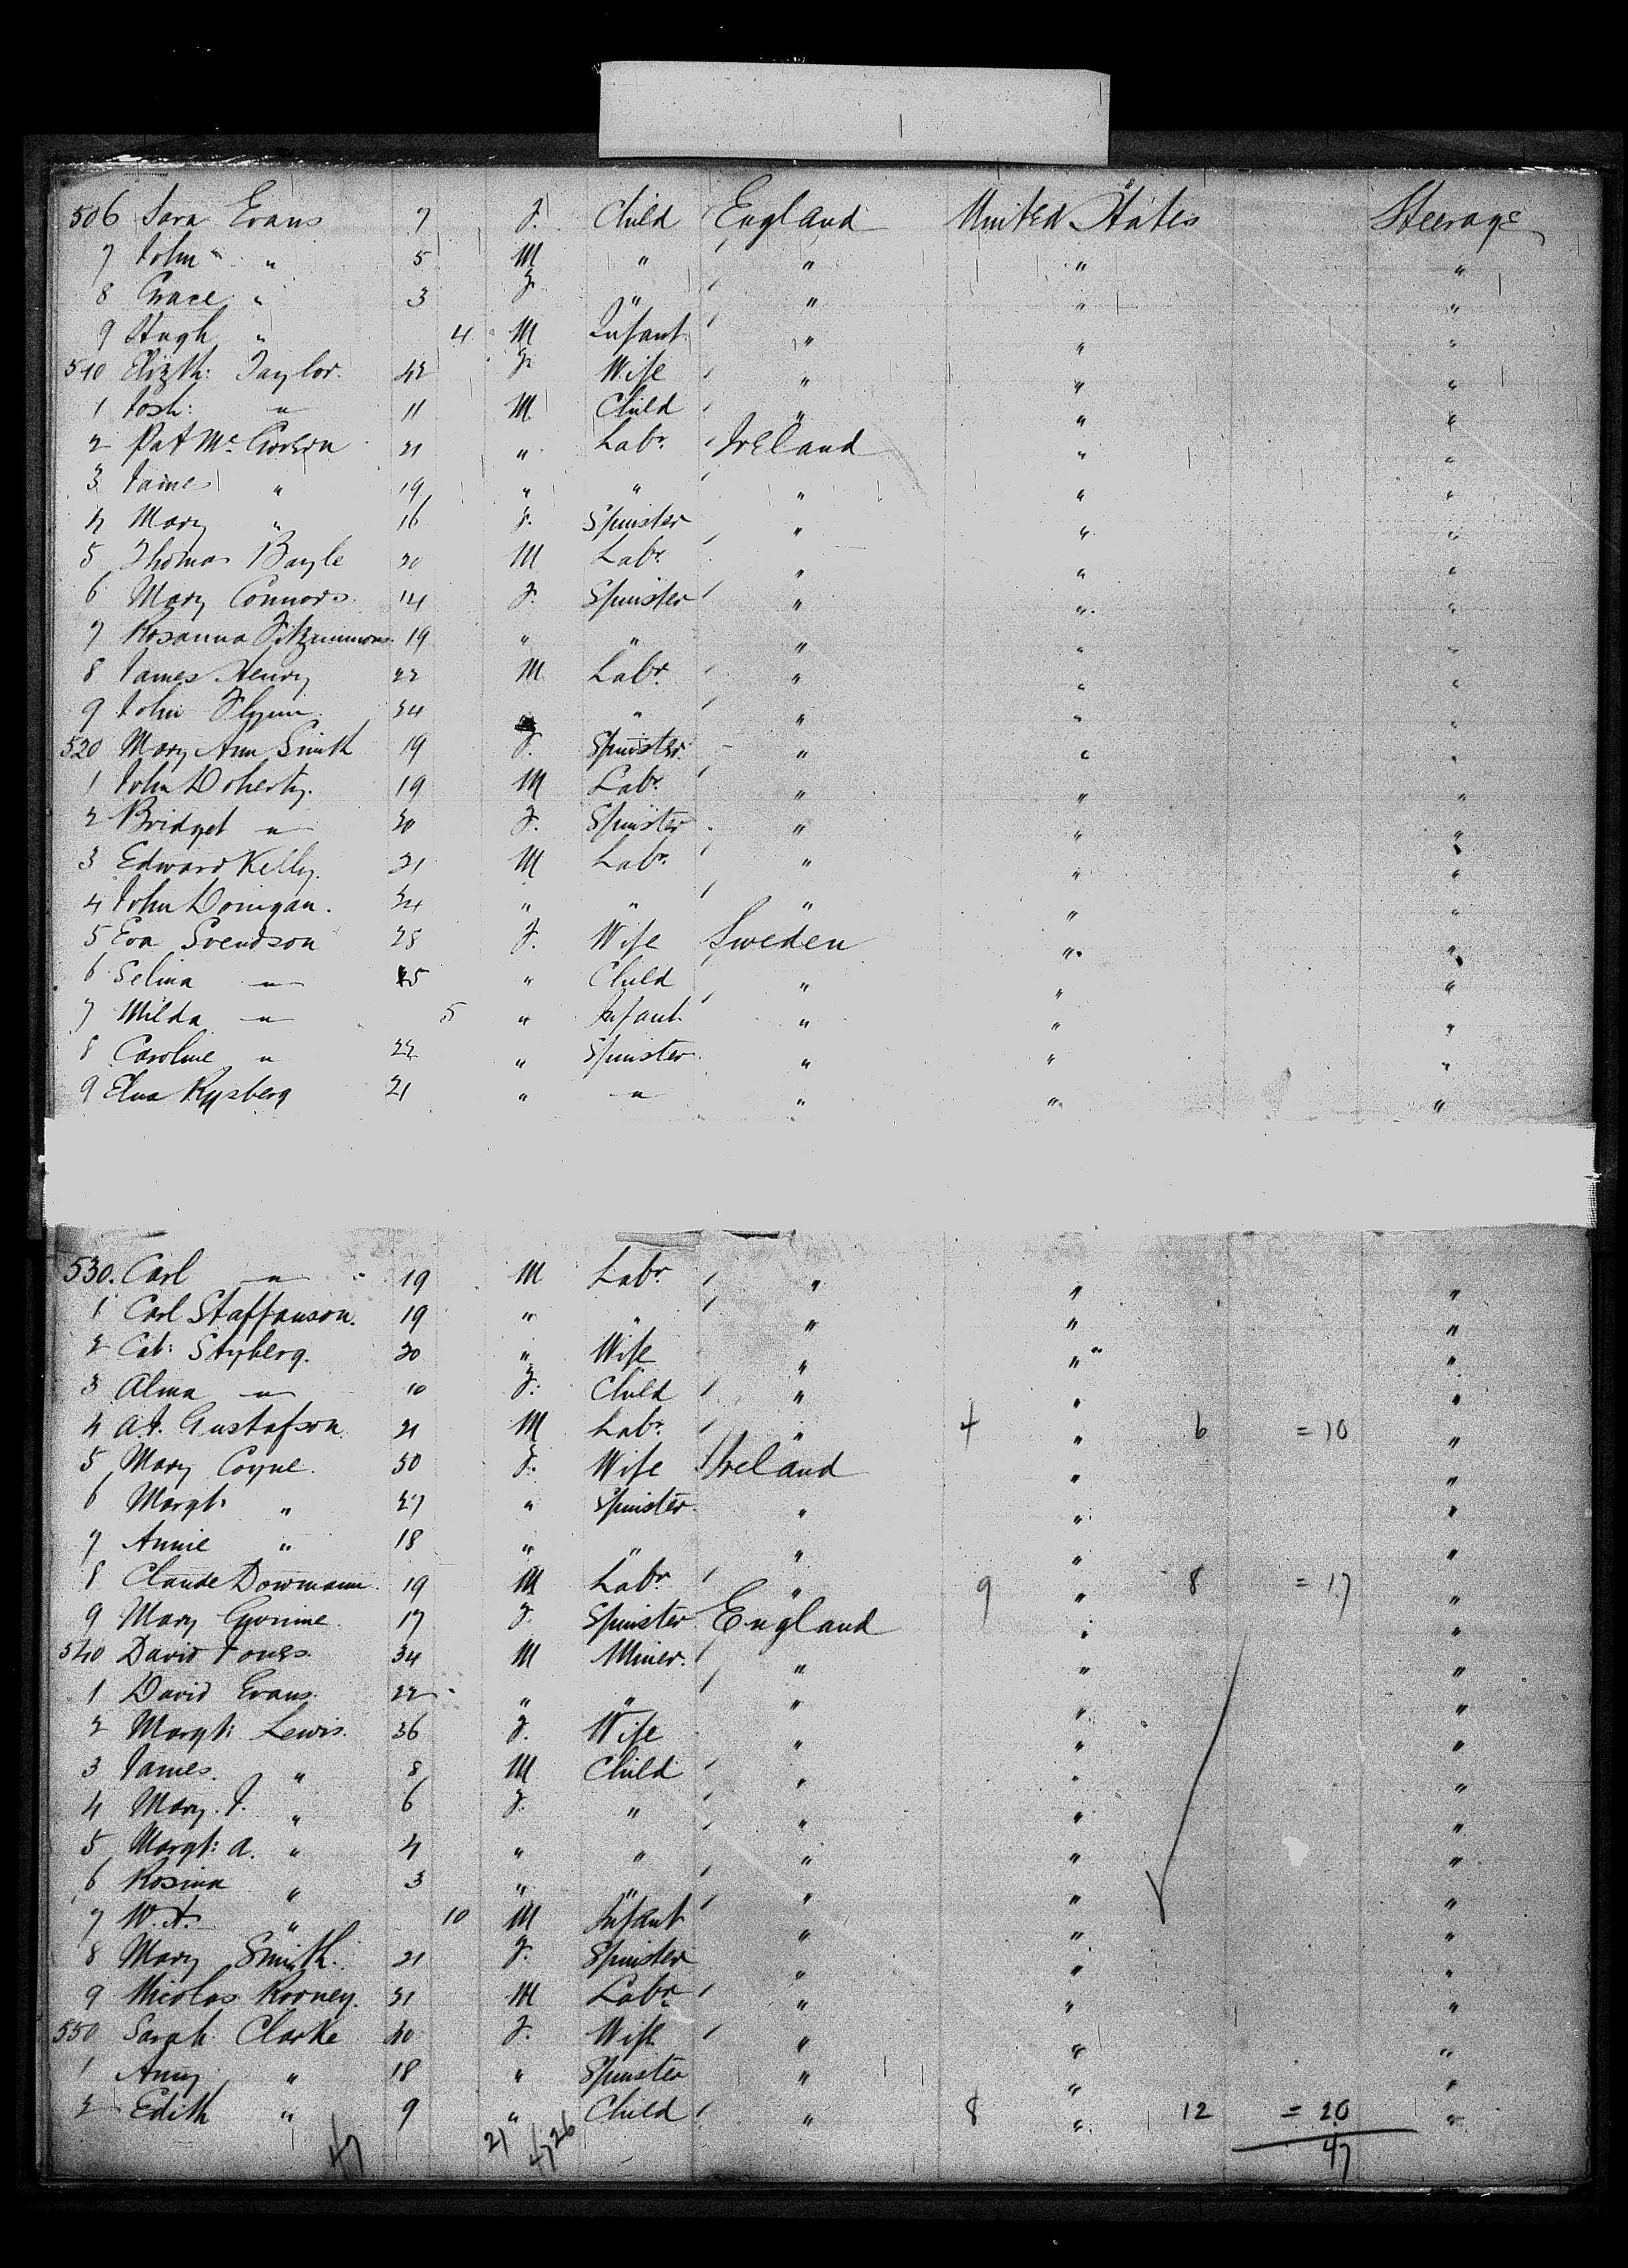 506 Sara Evans 7 F. Child England United States Steerage
7 John " 5 M " " " "
8 Grace " 3 F. " " " "
9 Hugh " 4 M Infant " " "
510 Elizth: Taylor. 42 F. Wife " " "
1 Josh: " 11 M Child " " "
2 Pat Mc 21 " Labr. Ireland " "
3 James " 19 " " " " "
4 Mary " 16 F. Spinster " " "
5 Thomas Boyle 20 M Labr. " " "
6 Mary Connors. 14 F. Spinster " " "
7 Rosanna Fitzsimmons. 19 " " " " "
8 James Henry 22 M Labr. " " "
9 John Flynn. 24 " " " "
520 Mary Ann Smith 19 F. Spinster. " " "
1 John Doherty. 19 M Labr. " " "
2 Bridget " 20 F. Spinster " " "
3 Edward Kelly. 21 M Labr. " " "
4 John Donigan. 24 " " " " "
5 Eva Svendson 28 F. Wife Sweden " "
6 Selina " 5 " Child " " "
7 Milda " 5 " Infant " " "
8 Caroline " 22 " Spinster " " "
9 Elna Rysberg 21 " " " " "
530. Carl " 19 M Labr. " " "
1 Carl Staffanson. 19 " " " " "
2 Cat: Styberg. 30 " Wife " " "
3 Alma " 10 F. Child " " "
4 A.J. Gustafson 21 M Labr. " 4 " 6 = 10 "
5 Mary Coyne. 50 F. Wife Ireland " "
6 Margt: " 27 " Spinster " " "
7 Annie " 18 " " " " "
8 Claude Dowmann. 19 M Labr. " 9 " 8 = 17 "
9 Mary 17 F. Spinster England " "
540 David Jones. 34 M Miner. " " "
1 David Evans. 22 " " " " "
2 Margt: Lewis. 36 F. Wife " " "
3 James. " 8 M Child " " "
4 Mary. J. " 6 F. " " " "
5 Margt: A. " 4 " " " " "
6 Rosina " 3 " " " " "
7 W. " 10 M Infant " " "
8 Mary Smith. 21 F. Spinster " " "
9 Nicolas Rooney. 31 M Labr " " "
550 Sarah Clarke 40 F. Wife " " "
1 Anny " 18 " Spinster " " "
2 Edith " 9 " Child " 8 " 12 = 20 "
47 21 47 26 47